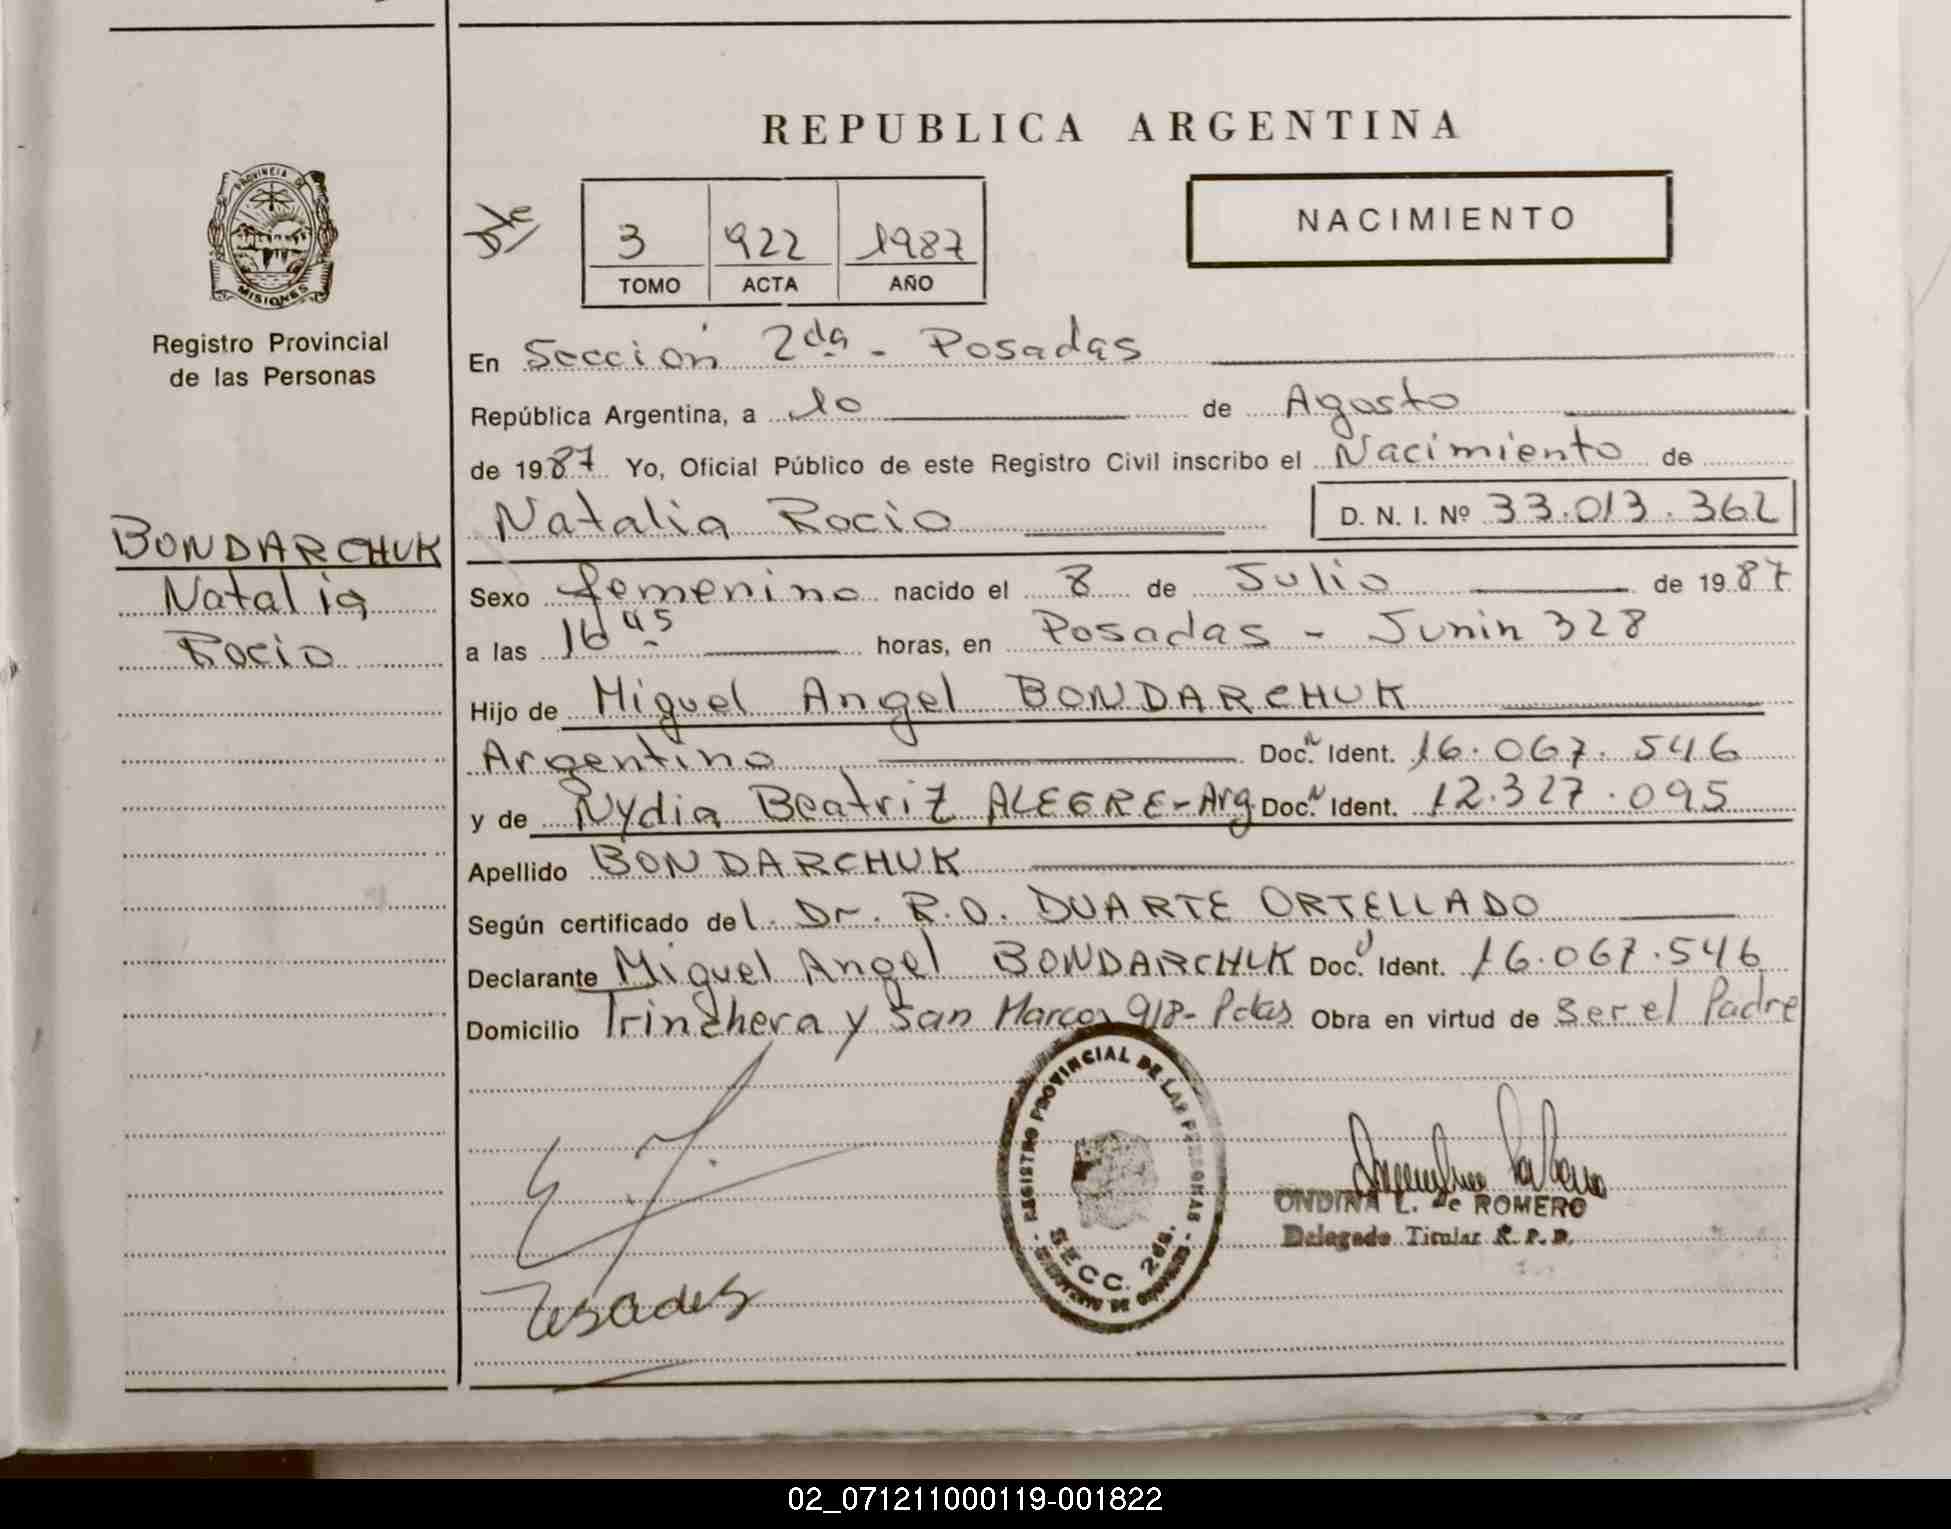 REPUBLICA ARGENTINA
PROVINCIA DE
MISIONES
Registro Provincial
de las Personas
3 922 1987
TOMO ACTA AÑO
NACIMIENTO
En Sección 2da - Posadas
República Argentina, a 10 de Agosto
de 1987 Yo, Oficial Público de este Registro Civil inscribo el Nacimiento de
Natalia Rocio D. N. I. Nº 33.013.362
BONDARCHUK
Natalia
Rocio
Sexo femenino nacido el 8 de Julio de 1987
a las 16 45 horas, en Posadas - Junin 328
Hijo de Miguel Angel BONDARCHUK
Argentino Doc. N Ident. 16.067.546
y de Nydia Beatriz ALEGRE-Arg. Doc. N Ident. 12.327.095
Apellido BONDARCHUK
Según certificado del Dr. R.O. DUARTE ORTELLADO
Declarante Miguel Angel BONDARCHUK Doc. Ident. 16.067.546
Domicilio Trinchera y San Marcos 918- Pdas Obra en virtud de Ser el Padre
REGISTRO PROVINCIAL DE LAS PERSONAS
SECC. 2da.
ONDINA L. de ROMERO
Delegado Titular R. P. P.
02_071211000119-001822